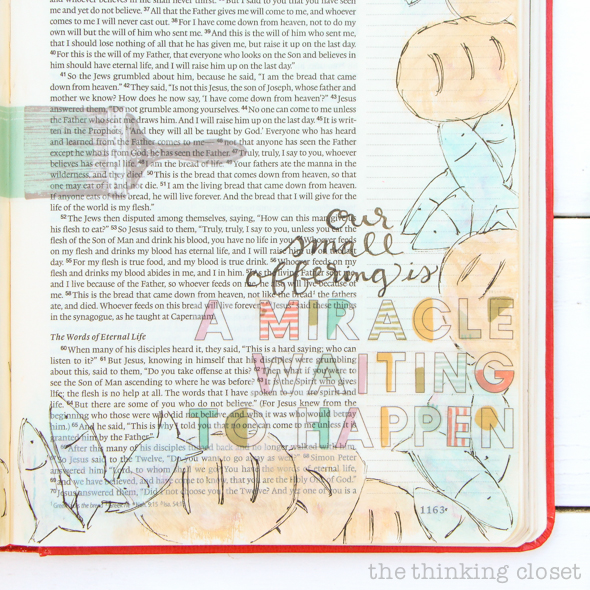 and yet do not believe. 37 All that the Father gives me will come to me, and whoever
comes to me I will never cast out. 38 For I have come down from heaven, not to do my
own will but the will of him who sent me. 39 And this is the will of him who sent me,
that I should lose nothing of all that he has given me, but raise it up on the last day.
40 For this is the will of my Father, that everyone who looks on the Son and believes in
him should have eternal life, and I will raise him up on the last day."
41 So the Jews grumbled about him, because he said, "I am the bread that came
down from heaven." 42 They said, "Is not this Jesus, the son of Joseph, whose father and
mother we know? How does he now say, 'I have come down from heaven'?" 43 Jesus
answered them, "Do not grumble among yourselves. 44 No one can come to me unless
the Father who sent me draws him. And I will raise him up on the last day. 45 It is writ-
ten in the Prophets, 'And they will all be taught by God.' Everyone who has heard
and learned from the Father comes to me— 46 not that anyone has seen the Father
except he who is from God; he has seen the Father. 47 Truly, truly, I say to you, whoever
believes has eternal life. 48 I am the bread of life. 49 Your fathers ate the manna in the
wilderness, and they died. 50 This is the bread that comes down from heaven, so that
one may eat of it and not die. 51 I am the living bread that came down from heaven.
If anyone eats of this bread, he will live forever. And the bread that I will give for the
life of the world is my flesh."
52 The Jews then disputed among themselves, saying, "How can this man give us
his flesh to eat?" 53 So Jesus said to them, "Truly, truly, I say to you, unless you eat the
flesh of the Son of Man and drink his blood, you have no life in you. 54 Whoever feeds
on my flesh and drinks my blood has eternal life, and I will raise him up on the last
day. 55 For my flesh is true food, and my blood is true drink. 56 Whoever feeds on my
flesh and drinks my blood abides in me, and I in him. 57 As the living Father sent me,
and I live because of the Father, so whoever feeds on me, he also will live because of
me. 58 This is the bread that came down from heaven, not like the bread the fathers
ate, and died. Whoever feeds on this bread will live forever." 59 Jesus said these things
in the synagogue, as he taught at Capernaum.
The Words of Eternal Life
60 When many of his disciples heard it, they said, "This is a hard saying; who can
listen to it?" 61 But Jesus, knowing in himself that his disciples were grumbling
about this, said to them, "Do you take offense at this? 62 Then what if you were to
see the Son of Man ascending to where he was before? 63 It is the Spirit who gives
life; the flesh is no help at all. The words that I have spoken to you are spirit and
life. 64 But there are some of you who do not believe." (For Jesus knew from the
beginning who those were who did not believe, and who it was who would betray
him.) 65 And he said, "This is why I told you that no one can come to me unless it is
granted him by the Father."
After this many of his disciples turned back and no longer walked with him.
So Jesus said to the Twelve, "Do you want to go away as well?" 68 Simon Peter
answered him, "Lord, to whom shall we go? You have the words of eternal life,
and we have believed, and have come to know, that you are the Holy One of God."
70 Jesus answered them, "Did I not choose you, the Twelve? And yet one of you is a
our
small
offering is
A MIRACLE
WAITING
TO HAPPEN
1163
the thinking closet